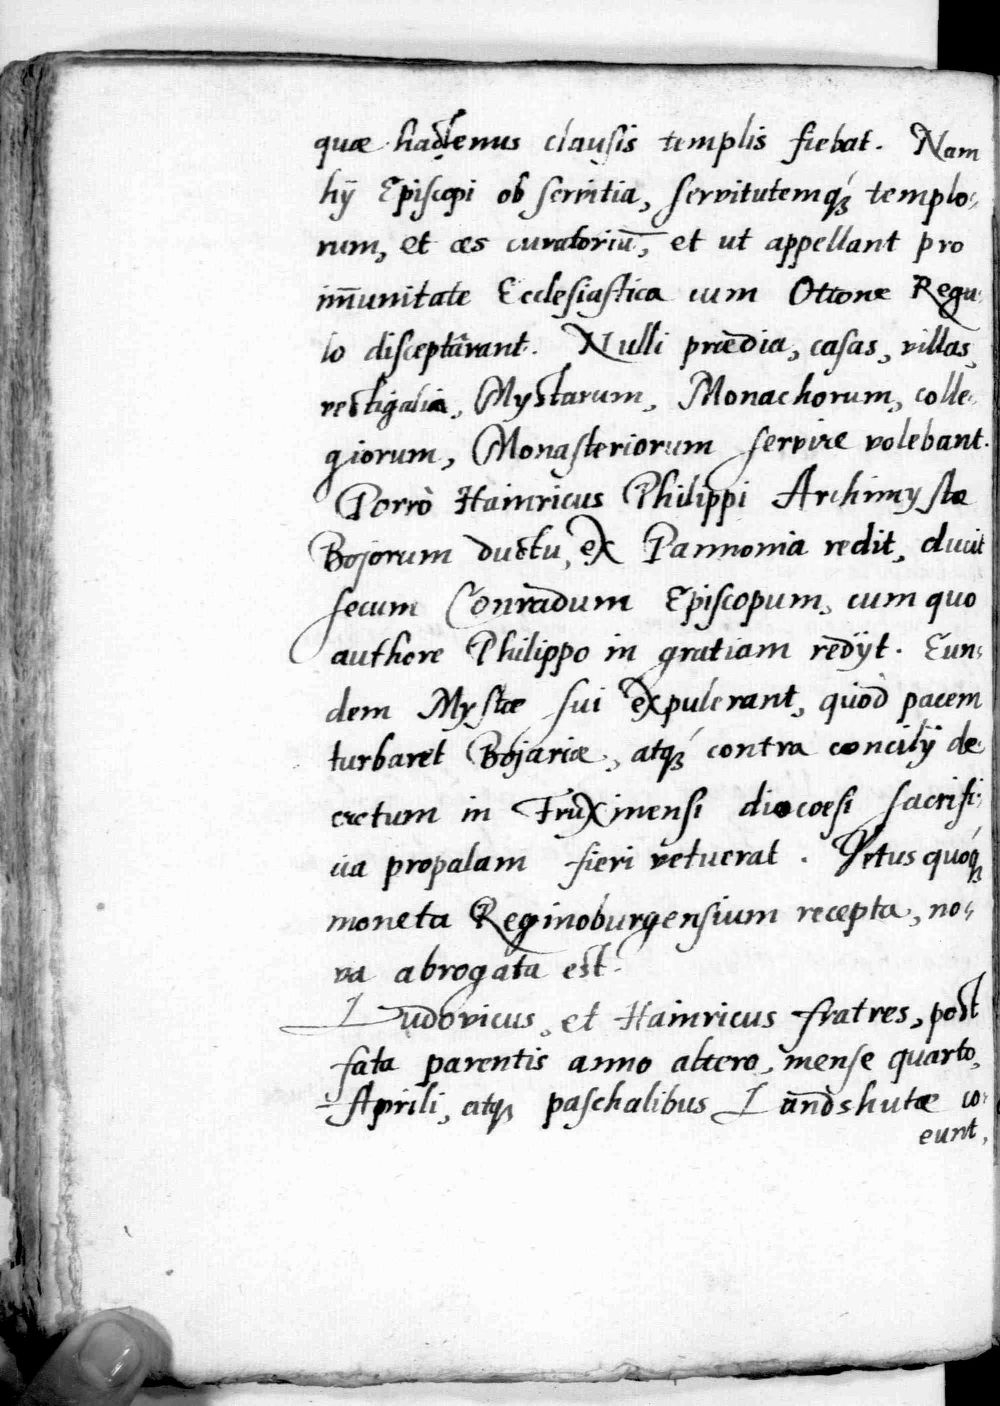 quæ hactenus clausis templis fiebat. Nam
hÿ Episcopi ob servitia, servitutemqꝫ templo-
rum, et æs curatoriū, et ut appellant pro
im̄unitate Ecclesiastica cum Ottone Regu-
lo disceptârant. Nulli prædia, casas, villas,
vectigalia, Mystarum, Monachorum, colle-
giorum, Monasteriorum servire volebant.
Porrò Hainricus Philippi Archimystæ
Bojorum ductu, ex Pannonia redit, ducit
secum Conradum Episcopum, cum quo
authore Philippo in gratiam redÿt. Eun-
dem Mystæ sui expulerant, quòd pacem
turbaret Bojariæ, atqꝫ contra concilÿ de-
cretum in Fruxinensi dioecoesi sacrifi-
cia propalam fieri vetuerat. Vetus quoqꝫ
moneta Reginoburgensium recepta, no-
va abrogata est.
Ludovicus, et Hainricus fratres, post
fata parentis anno altero, mense quarto,
Aprili, atqꝫ paschalibus Landshutæ co-
eunt,